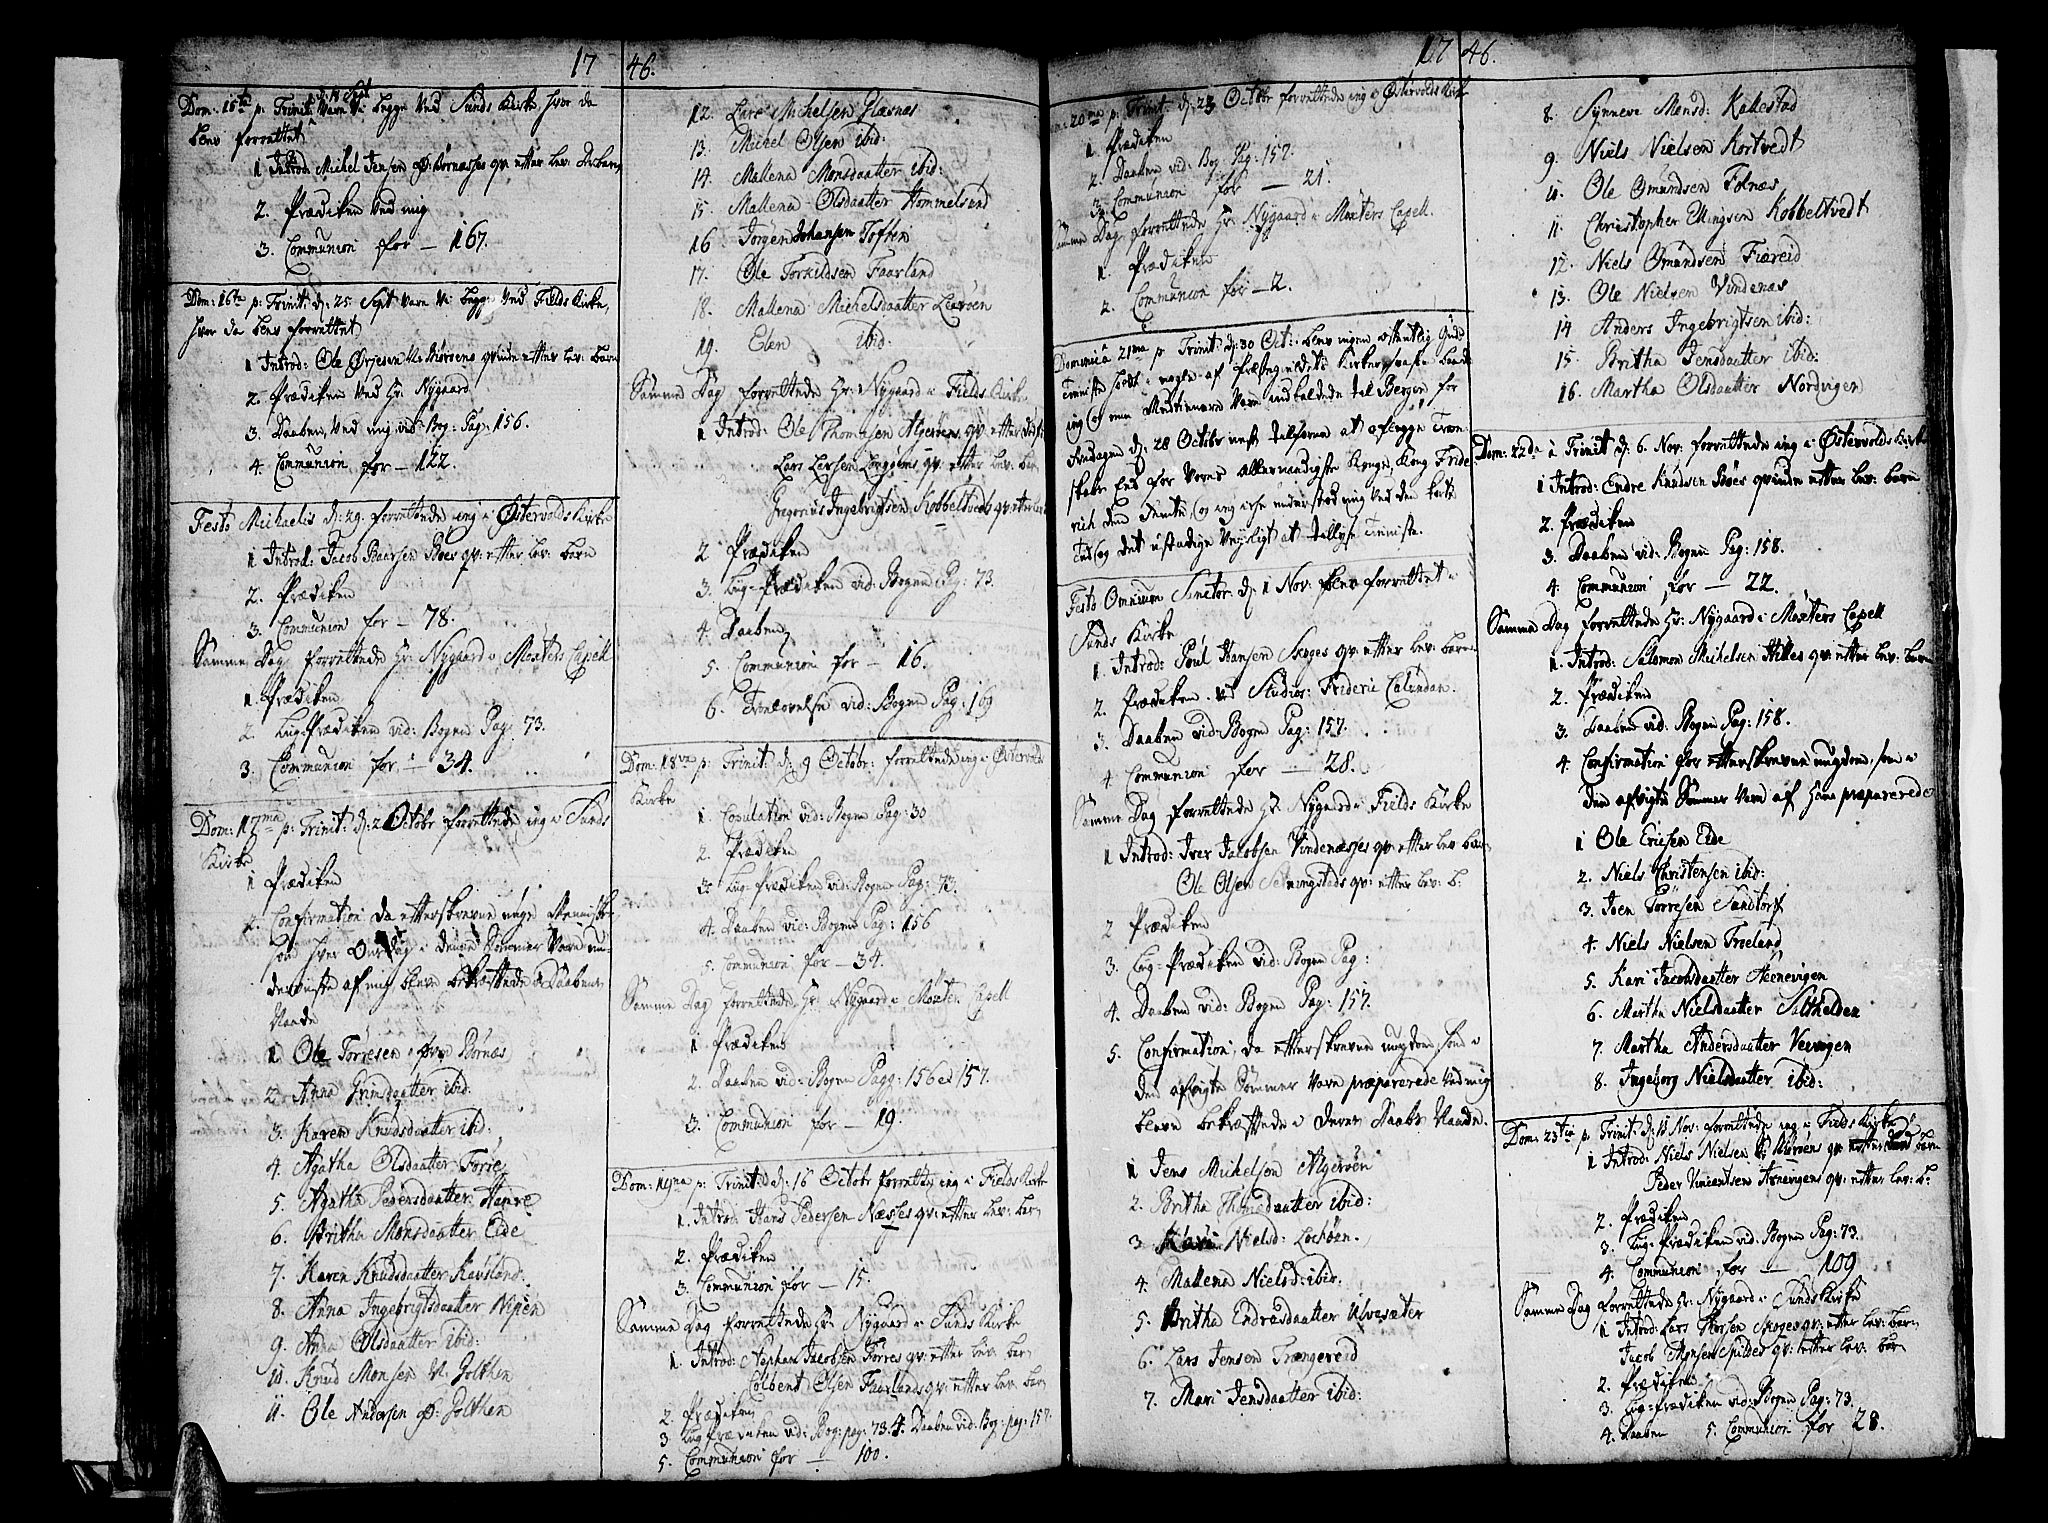 17 46.
d: 18 Sept
Dom: 15ta p: Trinit: Vare Vi begge Ved Sunds Kirke hvor da
blev forrettet
1 Introd: Michel Jensen Ø: Børnæsses qv: efter lev: barn
2. Prædiken Ved mig
3. Communion for — 167.
Dom: 16ta p: Trinit: d: 25 Sept Vare Vi begge Ved Fields Kirke,
hvor da blev forrettet
1 Introd: Ole qvinde efter lev: barn
2. Prædiken Ved Hr: Nygaard
3. Daaben, Ved mig vid: Bog: Pag: 156.
4. Communion for — 122.
Festo Michaelis d: 29. forrettede ieg i Østervolds Kirke
1 Introd: Jacob Baarsen Boes qv: efter lev: barn
2. Prædiken
3. Communion for — 78.
Samme Dag forrettede Hr: Nygaard i Møxters Capell
1. Prædiken
2. Liig-Prædiken vid: Bogen Pag: 73.
3. Communion for — 34.
Dom: 17ma p: Trinit: d: 2 Octobr forrettede ieg i Sunds
Kirke
1 Prædiken
2. Confirmation da efterskrevne unge Mennisker,
som hver i denne Sommer Vare un-
derviiste af mig bleve bekræftede i Daabens
Naade
1 Ole Torresen Øvre Børnæs
2. Anna Grimsdaatter ibid:
3. Karen Knudsdaatter ibid:
4. Agatha Olsdaatter Torre
5. Agatha Pedersdaatter
6. Britha Monsdaatter Eide
7. Karen Knudsdaatter Kausland:
8. Anna Ingebrigtsdaatter Nipen
9. Anna Olsdaatter ibid:
10. Knud Monsen N: Golthen
11. Ole Andersen Ø: Golthen
12. Lars Michelsen Glesnæs
13. Michel Olsen ibid:
14. Mallena Monsdaatter ibid:
15. Mallena Olsdaatter Hommelsund
16 Jørgen Johansen Toften
17. Ole Torkildsen Faarland
18. Mallena Michelsdaatter Lerøen
19. Elen ibid:
Samme Dag forrettede Hr: Nygaard i Fields Kirke
1 Introd: Ole Thomesen Algerøens qv: efter
Lars Larsen qv: efter lev: barn
Gregorius Ingebrigtsen Kobbeltvedts qv: efter
2. Prædiken
3. Liig-Prædiken vid: Bogen Pag: 73.
4. Daaben
5. Communion for — 16.
6. Trolovelse vid: Bogen Pag: 109
Dom: 18va p: Trinit: d: 9 Octobr: forrettede ieg i Østervolds
Kirke
1 Copulation vid: Bogen Pag: 30
2. Prædiken
3. Liig-prædiken vid: Bogen Pag: 73.
4. Daaben vid: Bogen Pag: 156
5. Communion for — 34.
Samme Dag forrettede Hr: Nygaard i Møxter Capell
1 Prædiken
2. Daaben vid: Bogen Pagg: 156 et 157.
3. Communion for — 19.
Dom: 19na p: Trinit: d: 16 Octobr forrettede ieg i Fields Kirke
1. Introd: Hans Pedersen Næsses qv: efter lev: barn
2. Prædiken
3. Communion for — 15.
Samme Dag forrettede Hr: Nygaard i Sunds Kirke
1. Introd: Stephan Jacobsen Torres qv: efter lev: barn
Colbent Olsen Faarlands qv: efter lev: barn
2. Prædiken
3 Liig Prædiken vid: Bog: pag: 73. 4. Daaben vid: Bog: pag: 157.
5. Communion for — 100.
17 46.
20ma p: Trinit: d: 23 Octobr forrettede ieg i Østervolds Kirke
1. Prædiken
2. Daaben vid: Bog: Pag: 157.
3. Communion for — 21.
Samme Dag forrettede Hr: Nygaard i Møxters Capell.
1. Prædiken
2. Communion for — 2.
Dominica 21ma p: Trinit: d: 30 Oct: blev ingen offentlig Guds-
Tienniste holdt i nogle af Præstegieldets Kirker, saasom baade
ieg og min Medtienere Vare indkaldede til Bergen for
Fredagen d: 28 Octobr nest tilforne at aflegge Troe-
skabs Eed for Vores allernaadigste Konge, Kong Fride-
rich den Femte, og ieg icke understod mig Ved den korte
Tid og det ustadige Veyrligt at tillyse Tienniste.
Festo Omnium Sanctor: d: 1 Nov: blev forrettet i
Sunds Kirke
1. Introd: Poul Hansen Skoges qv: efter lev: barn
2. Prædiken. Ved Studios: Frideric Calundan.
3. Daaben vid: Bogen Pag: 157.
4 Communion for — 28.
Samme Dag forrettede Hr. Nygaard i Fields Kirke
1 Introd: Iver Jacobsen Vindenæsses qv: efter lev: barn
Ole Olsen qv: efter lev: b:
2 Prædiken
3. Liig-Prædiken vid: Bogen Pag:
4. Daaben vid: Bogen Pag: 157.
5. Confirmation, da efterskrevne ungdom, som i
den afvigte Sommer Vare præparerede Ved mig
bleve bekræftede i deres Daabs Naade.
1 Jens Michelsen Algerøen
2. Britha Thomædaatter ibid:
3 Nielsd: Lochøen.
4. Mallena Nielsd: ibid:
5. Britha Endræsdaatter Ulvesæter
6. Lars Jensen Trængereid
7. Mari Jensdaatter ibid:
8. Synneve Monsd: Kallestad
9. Niels Nielsen Kortvedt
10. Ole Omundsen Folnæs
11. Christopher Kobbeltvedt
12. Niels Omundsen Fiæreid
13. Ole Nielsen Vindenæs
14 Anders Ingebrigtsen ibid:
15. Britha Jensdaatter ibid:
16. Martha Olsdaatter Nordvigen
Dom: 22da à Trinit d: 6. Nov: forrettede ieg i Østervolds Kirke
1 Introd: Endre Knudsen Boes qvinde efter lev: barn
2. Prædiken
3. Daaben vid: Bogen Pag: 158.
4. Communion for — 22.
Samme Dag forrettede Hr: Nygaard i Møxters Capell
1. Introd: Salomon Michelsen qv: efter lev: barn
2. Prædiken
3. Daaben vid: Bogen Pag: 158.
4. Confirmation for efterskrevne ungdom, som i
den afvigte Sommer Vare af ham præparerede
1 Ole Ericsen Eide
2. Niels Christensen ibid:
3. Joen Torresen Sandtorf
4. Niels Nielsen Froeland
5. Kari Jacobsdaatter
6. Martha Nielsdaatter Salthelden
7. Martha Andersdaatter Vervigen
8. Ingeborg Nielsdaatter ibid:
Dom: 23tia p: Trinit: d: 13 Nov: forrettede ieg i Fields Kirke
1 Introd: Niels Nielsen qv: efter barn
Peder Vincentsen qv: efter lev: b:
2. Prædiken
3. Liig-Prædiken vid: Bogen Pag: 73.
4. Communion for — 109
Samme Dag forrettede Hr: Nygaard i Sunds Kirke
1 Introd: Lars Skoges qv: efter lev: barn
Jacob Monsen Spildes qv: efter lev: barn
2. Prædiken
3. Liig-Prædiken vid: Bogen Pag: 73.
4. Daaben 5. Communion for 28.